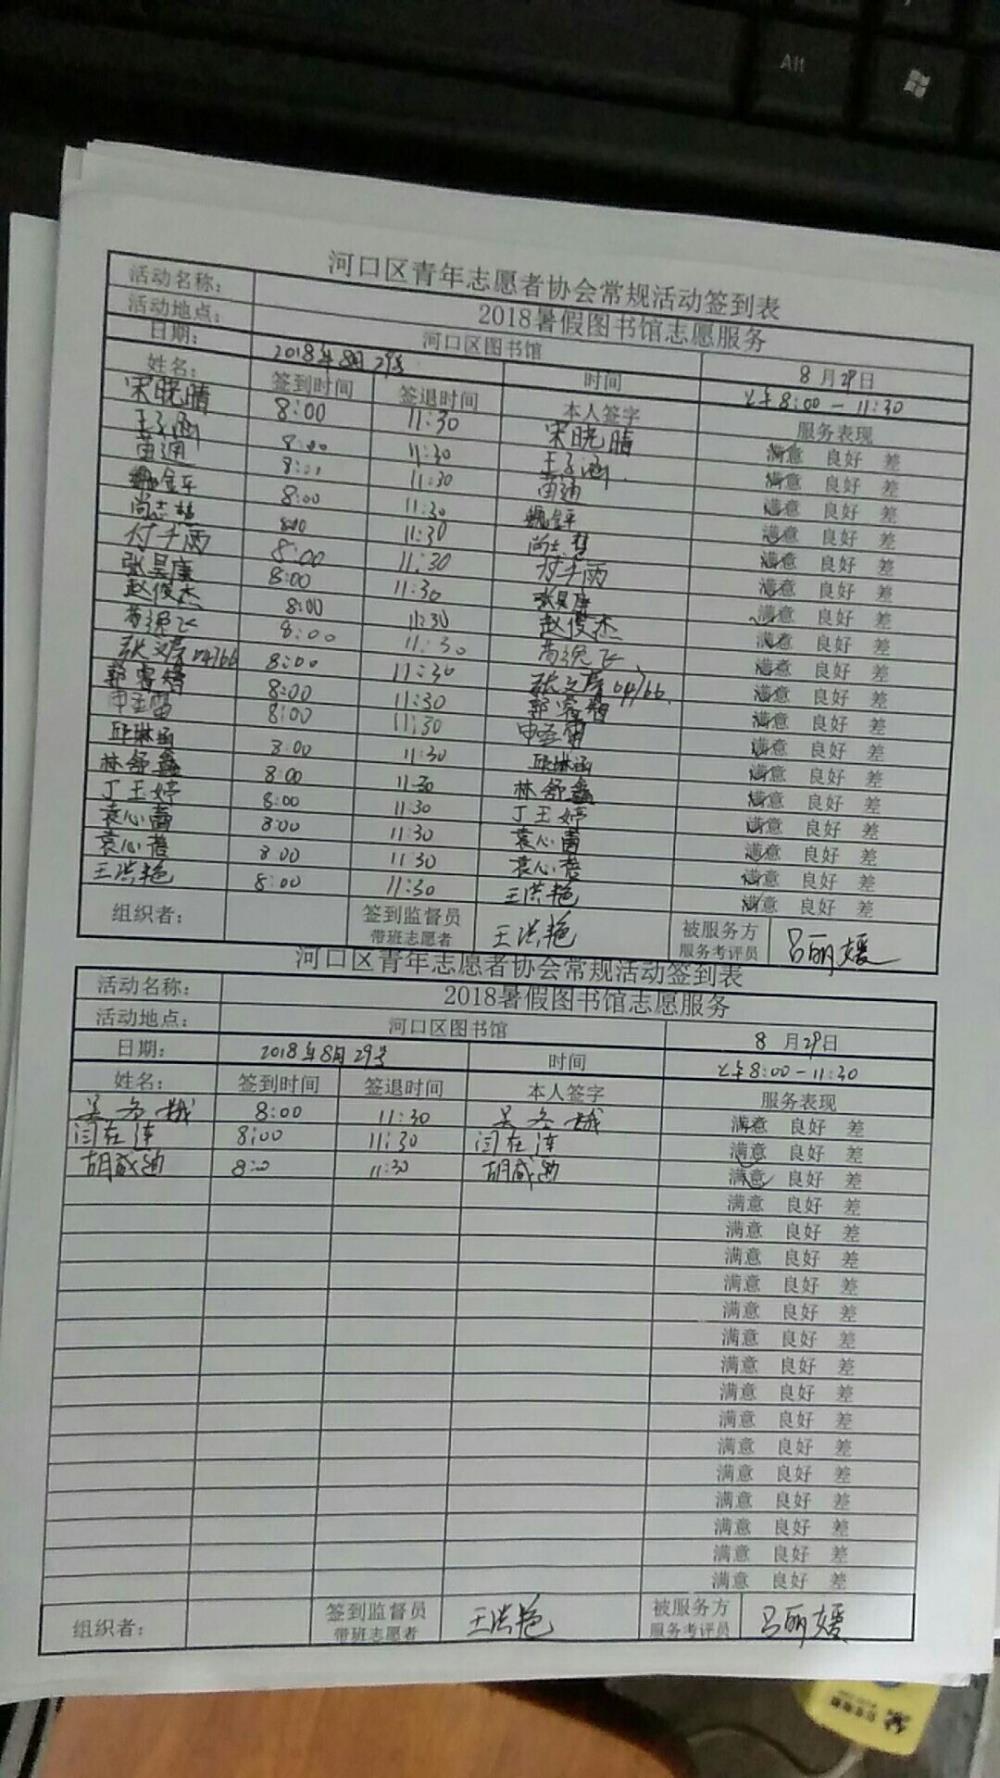 Alt
河口区青年志愿者协会常规活动签到表
活动名称： 2018暑假图书馆志愿服务
活动地点： 河口区图书馆 8月29日
日期： 2018年8月29号 时间 上午8:00-11:30
姓名： 签到时间 签退时间 本人签字 服务表现
宋晓晴 8:00 11:30 宋晓晴 满意 良好 差
王子涵 8:00 11:30 王子涵 满意 良好 差
苗迪 8:00 11:30 苗迪 满意 良好 差
魏金平 8:00 11:30 魏金平 满意 良好 差
尚志 8:00 11:30 尚志 满意 良好 差
付千雨 8:00 11:30 付千雨 满意 良好 差
张昊康 8:00 11:30 张昊康 满意 良好 差
赵俊杰 8:00 11:30 赵俊杰 满意 良好 差
逸飞 8:00 11:30 逸飞 满意 良好 差
张文 04766 8:00 11:30 张文 04766 满意 良好 差
郭睿 8:00 11:30 郭睿 满意 良好 差
申 8:00 11:30 申 满意 良好 差
邱琳涵 8:00 11:30 邱琳涵 满意 良好 差
林舒鑫 8:00 11:30 林舒鑫 满意 良好 差
丁王婷 8:00 11:30 丁王婷 满意 良好 差
袁心蕾 8:00 11:30 袁心蕾 满意 良好 差
袁心蓓 8:00 11:30 袁心蓓 满意 良好 差
王洪艳 8:00 11:30 王洪艳 满意 良好 差
组织者： 签到监督员 王洪艳 被服务方 吕丽媛
带班志愿者 服务考评员
河口区青年志愿者协会常规活动签到表
活动名称： 2018暑假图书馆志愿服务
活动地点： 河口区图书馆 8月29日
日期： 2018年8月29号 时间 上午8:00-11:30
姓名： 签到时间 签退时间 本人签字 服务表现
吴冬越 8:00 11:30 吴冬越 满意 良好 差
闫在连 8:00 11:30 闫在连 满意 良好 差
胡咸迪 8:0 11:30 胡咸迪 满意 良好 差
满意 良好 差
满意 良好 差
满意 良好 差
满意 良好 差
满意 良好 差
满意 良好 差
满意 良好 差
满意 良好 差
满意 良好 差
满意 良好 差
满意 良好 差
满意 良好 差
满意 良好 差
满意 良好 差
满意 良好 差
组织者： 签到监督员 王洪艳 被服务方 吕丽媛
带班志愿者 服务考评员